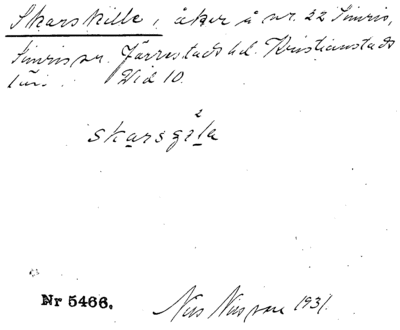 Skarskille, åker å nr. 22 Simris,
Simris sn. Järrestads hd. Kristianstads
län. Vid 10.
skarsgila
2
Nr 5466.
Nils Nilsson 1931.